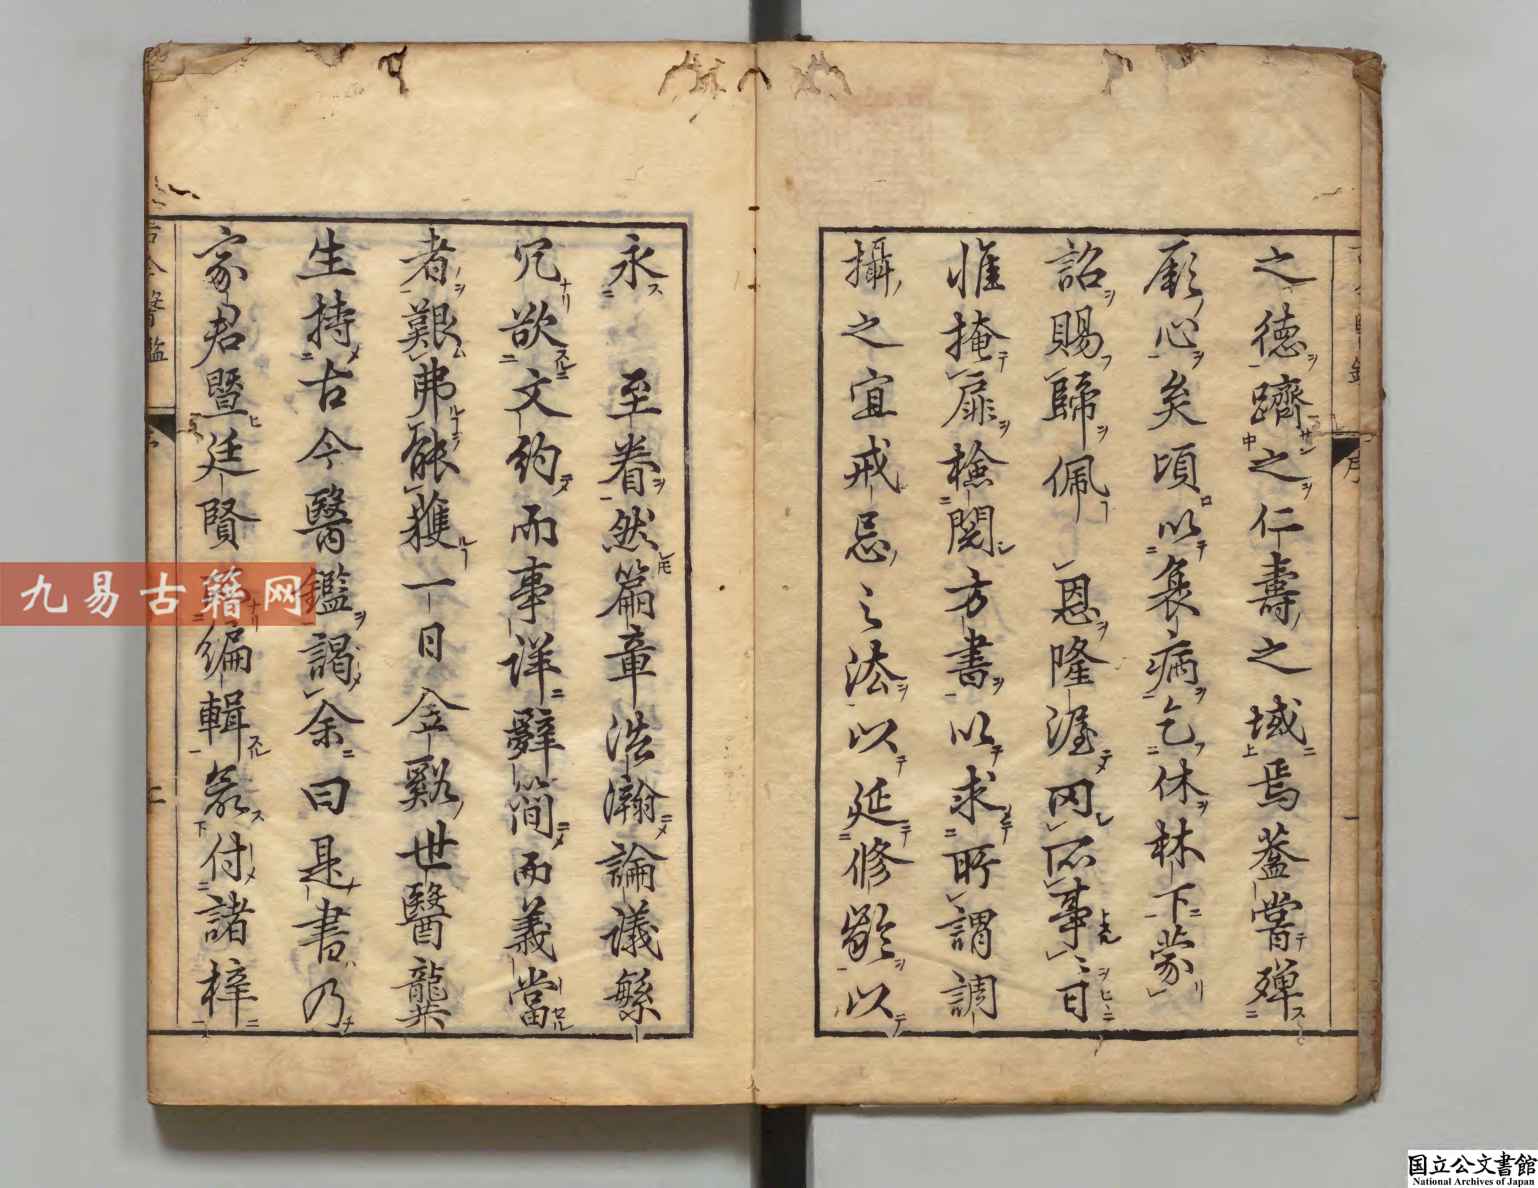 之德躋之仁壽之域焉蓋嘗殫
厥心矣頃以衰病乞休林下蒙
詔賜歸佩　恩隆渥罔所事事日
惟掩扉檢閱方書以求所謂調
攝之宜戒忌之法以延修齡以
永　至眷然篇章浩瀚論議繁
冗欲文約而事詳辭簡而義當
者艱弗能獲一日金谿世醫龔
生持古今醫鑑謁余曰是書乃
家君暨廷賢編輯敢付諸梓
九易古籍网
国立公文書館
National Archives of Japan